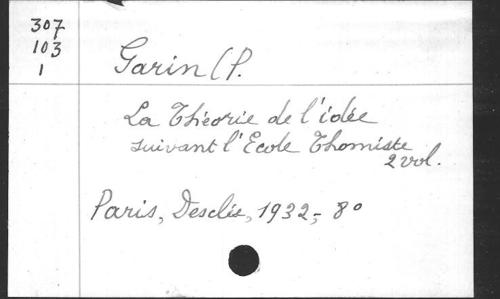 307
103
1
Garin (P.
La Théorie de l'idée
suivant l'Ecole Thomiste
2 vol.
Paris, Desclée, 1932,- 8°